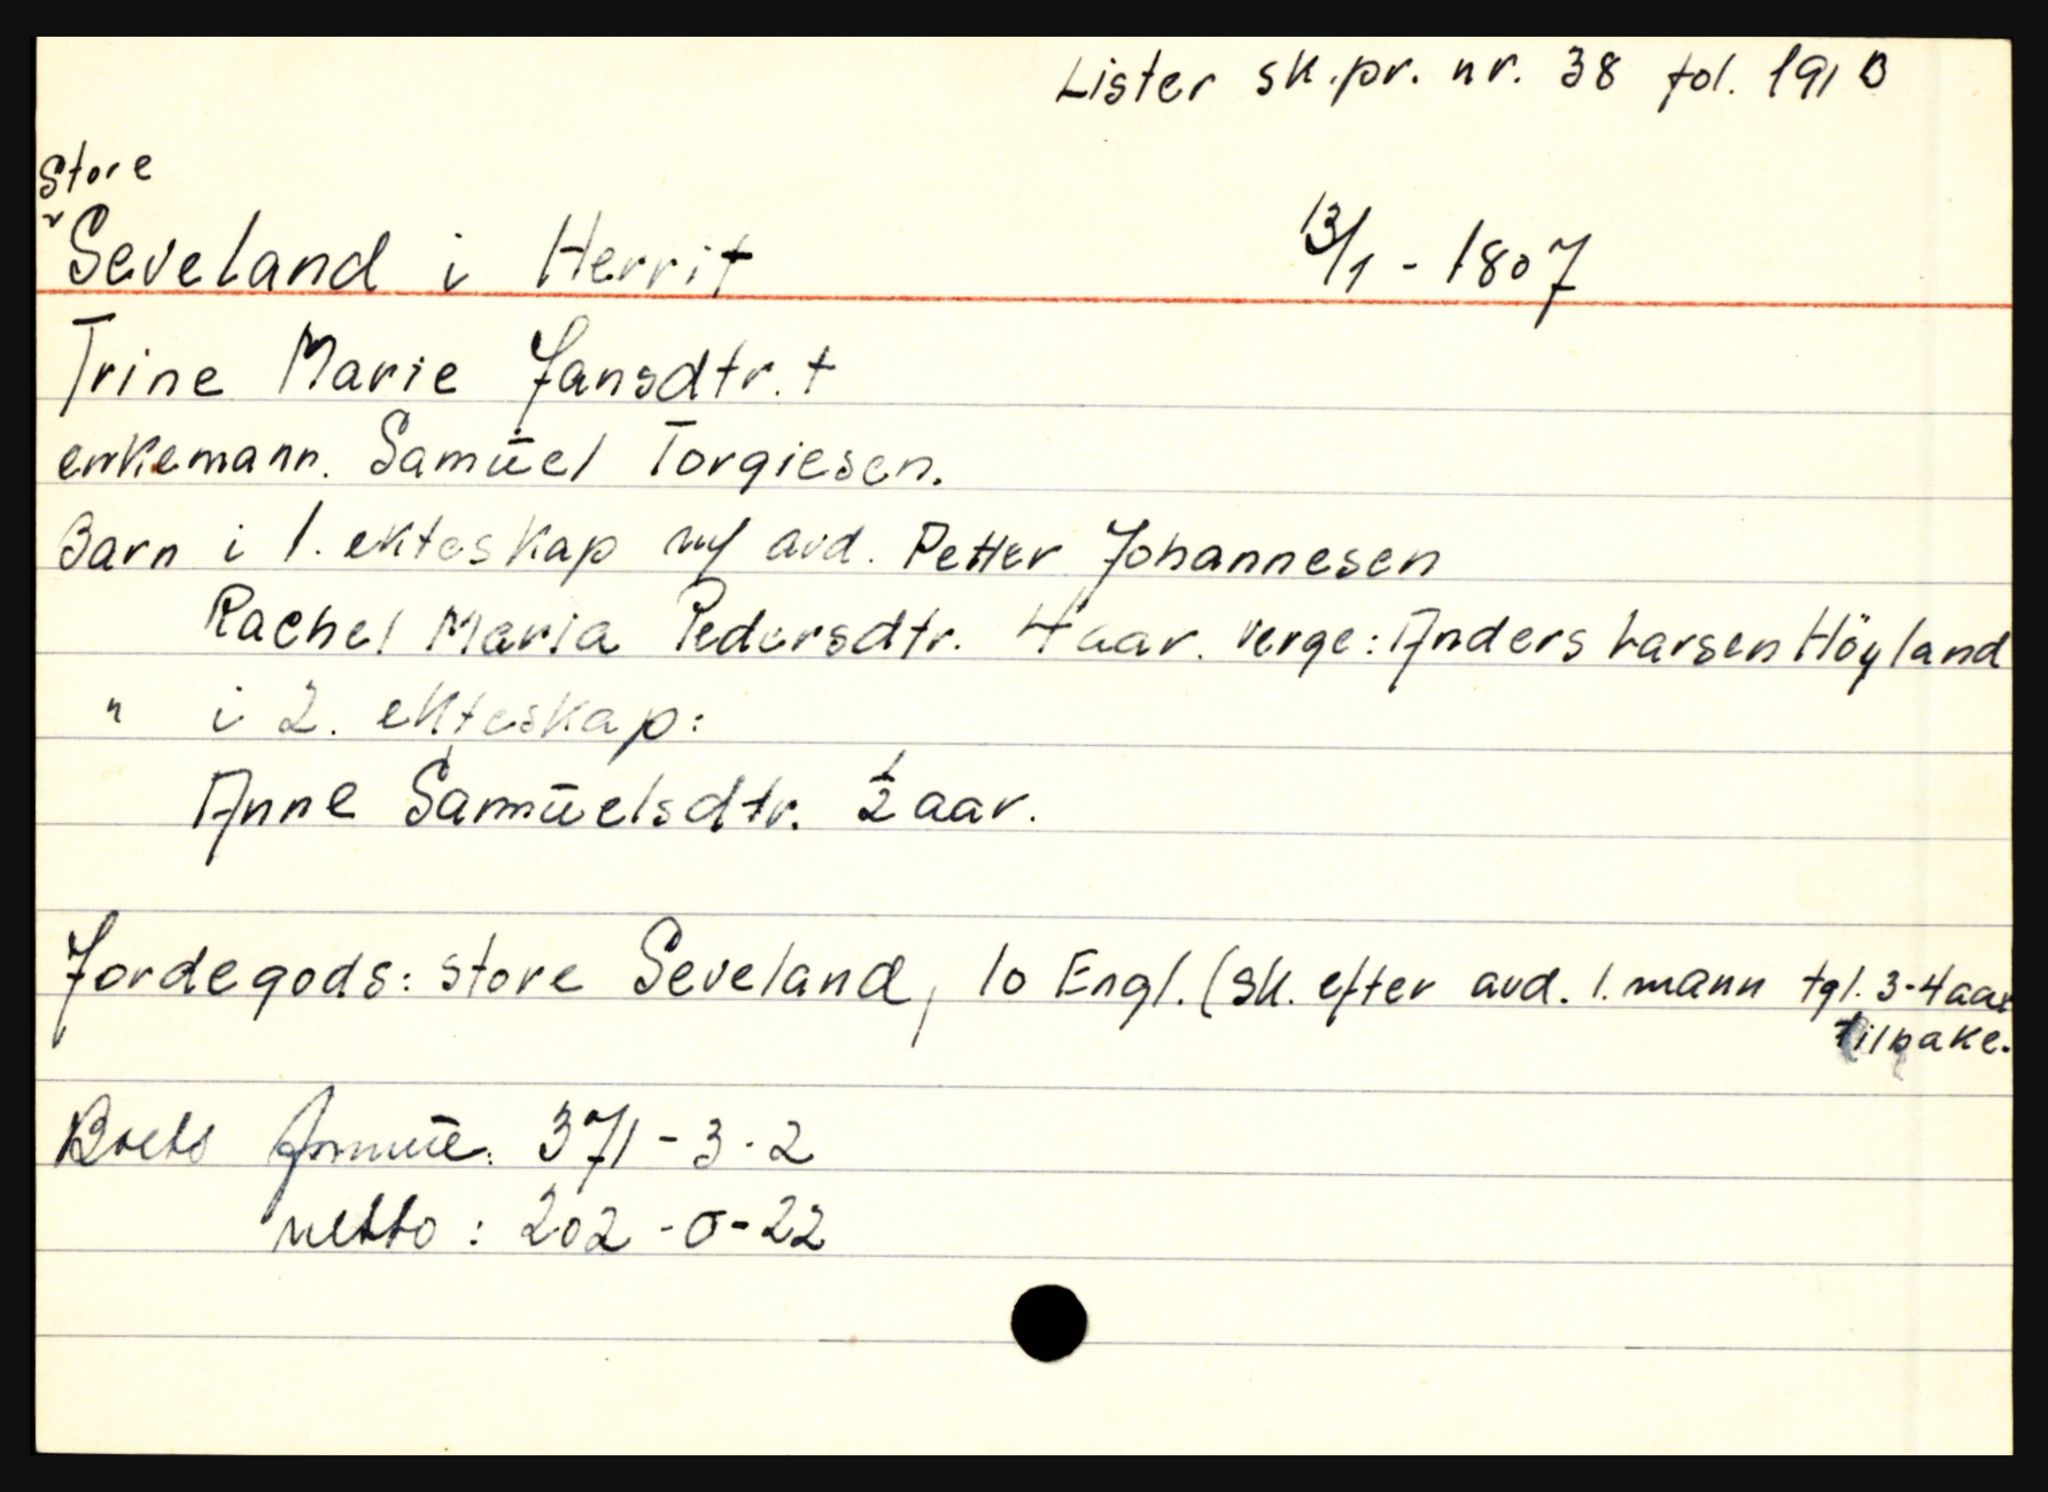 Lister sk.pr. nr. 38 fol. 191 B
Store
Seveland i Herrit
13/1 - 1807
Trine Marie Jansdtr. +
enkemann. Samūel Torgiesen.
Barn i 1. ekteskap m/ avd. Petter Johannesen
Rachel Maria Pedersdtr. 4 aar. verge: Anders Larsen Höyland
" i 2. ekteskap:
Anne Samūelsdtr. ½ aar.
Jordegods: store Seveland, 10 Engl. (sk. efter avd. 1. mann tgl. 3-4 aar
tilbake.
Boets formūe: 371 - 3 - 2
netto: 202 - 0 - 22